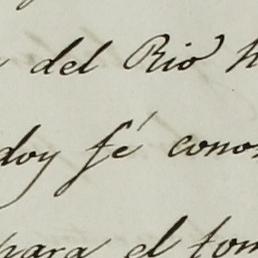 del Rio h
doy fé conos
para el tom